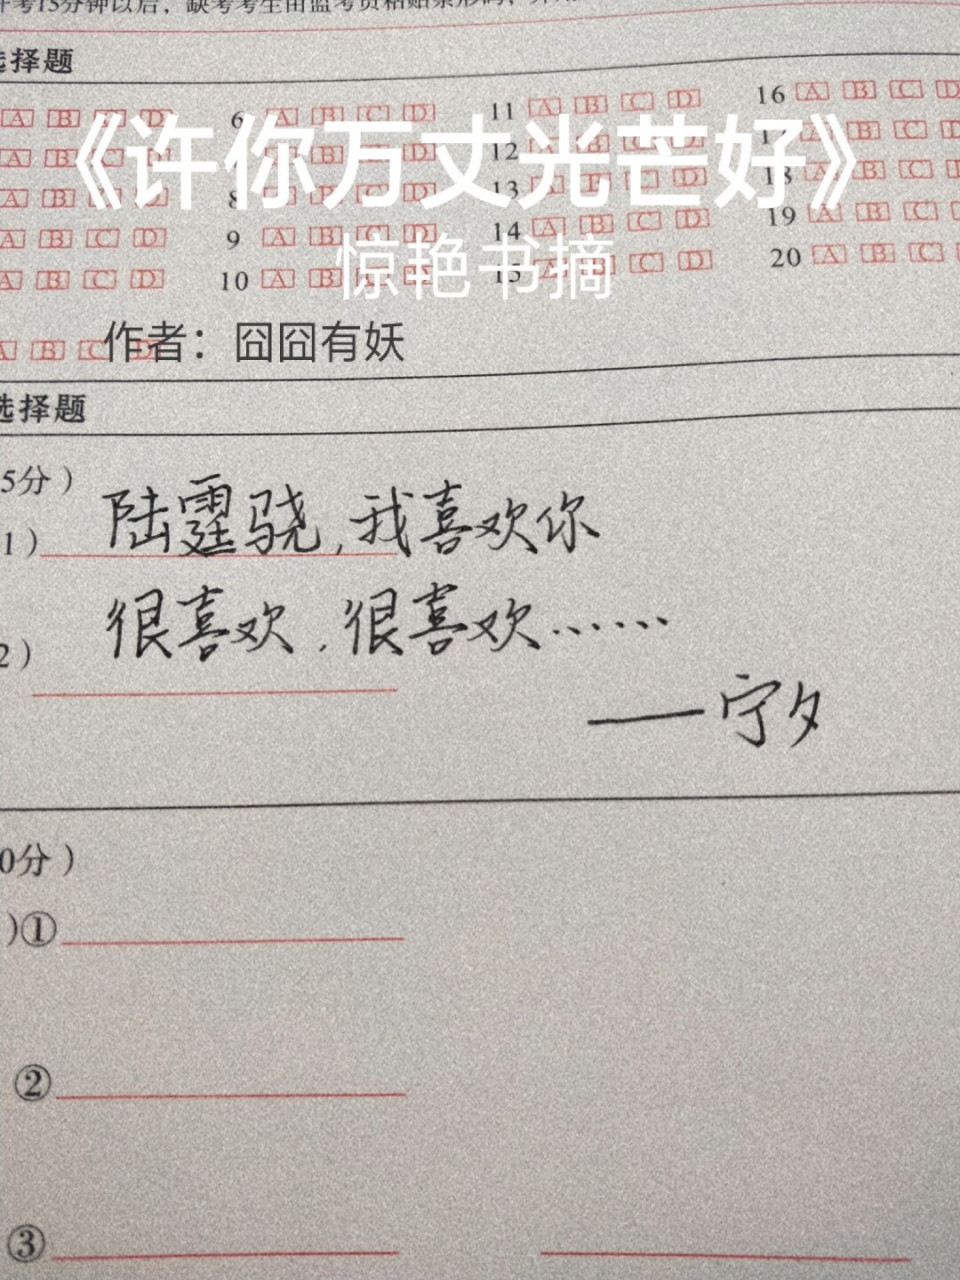 考15分钟以后，缺考考生由监考员粘贴条形码，并用
选择题
A B C D 6 A B C D 11 A B C D 16 A B C D
《许你万丈光芒好》
A B C D B D 12 A B C D 17 B C D
A B C D 8 A B C D 13 A B C D 18 A B C D
A B C D 9 A B C D 14 A B C D 19 A B C D
惊艳书摘
A B C D 10 A B C D 15 A B C D 20 A B C D
作者：囧囧有妖
A B C D
选择题
5分）
1） 陆霆骁，我喜欢你
2） 很喜欢，很喜欢……
——宁夕
0分）
）①
②
③